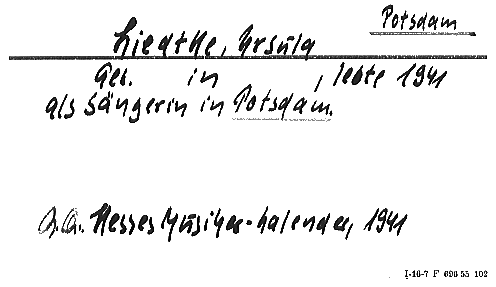 Potsdam
Liedtke, Ursula
Geb. in , lebte 1941
als Sängerin in Potsdam.
Hesses Musiker-Kalender, 1941
I-16-7 F 696 55 102